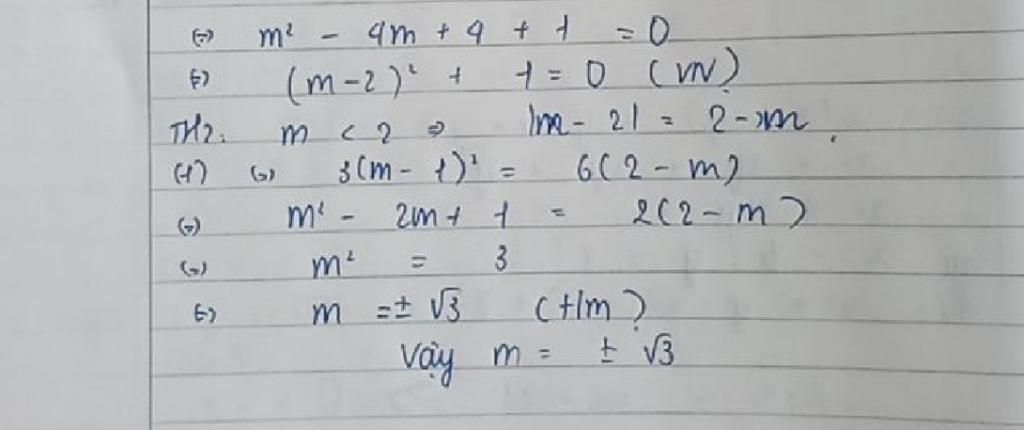 (=) m² - 4m + 4 + 1 = 0
(=) (m-2)² + 1 = 0 (VN)
TH2: m < 2 => |m - 2| = 2 - m.
(1) (=) 3(m - 1)² = 6(2 - m)
(=) m² - 2m + 1 = 2(2 - m)
(=) m² = 3
(=) m = ± √3 (t/m)
Vậy m = ± √3